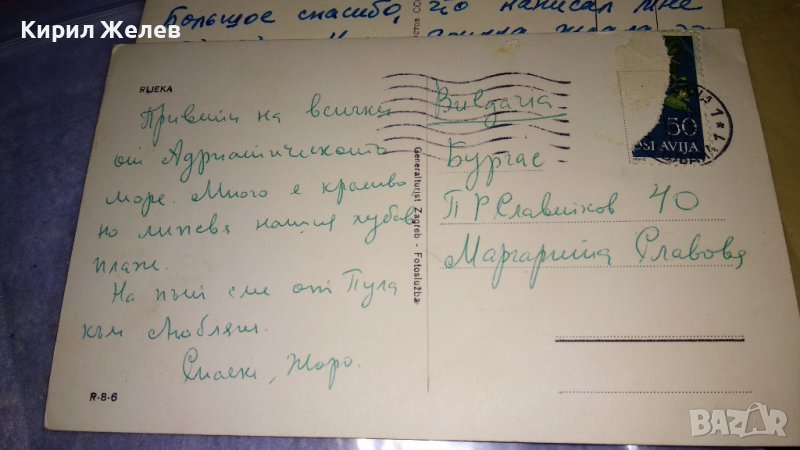 Кирил Желев
Большое спасибо, что написал мне
RIJEKA
Привети на всички
от Адриатическото
море. Много е красиво
но липсва нашия хубав
плаж.
На път сме от Пула
към Любляна.
Спаски, Жоро.
R-8-6
Generalturist Zagreb - Fotoslužba
България
Бургас
П Р Славейков 40
Маргарита Славова
50
OSLAVIJA
BAZAR